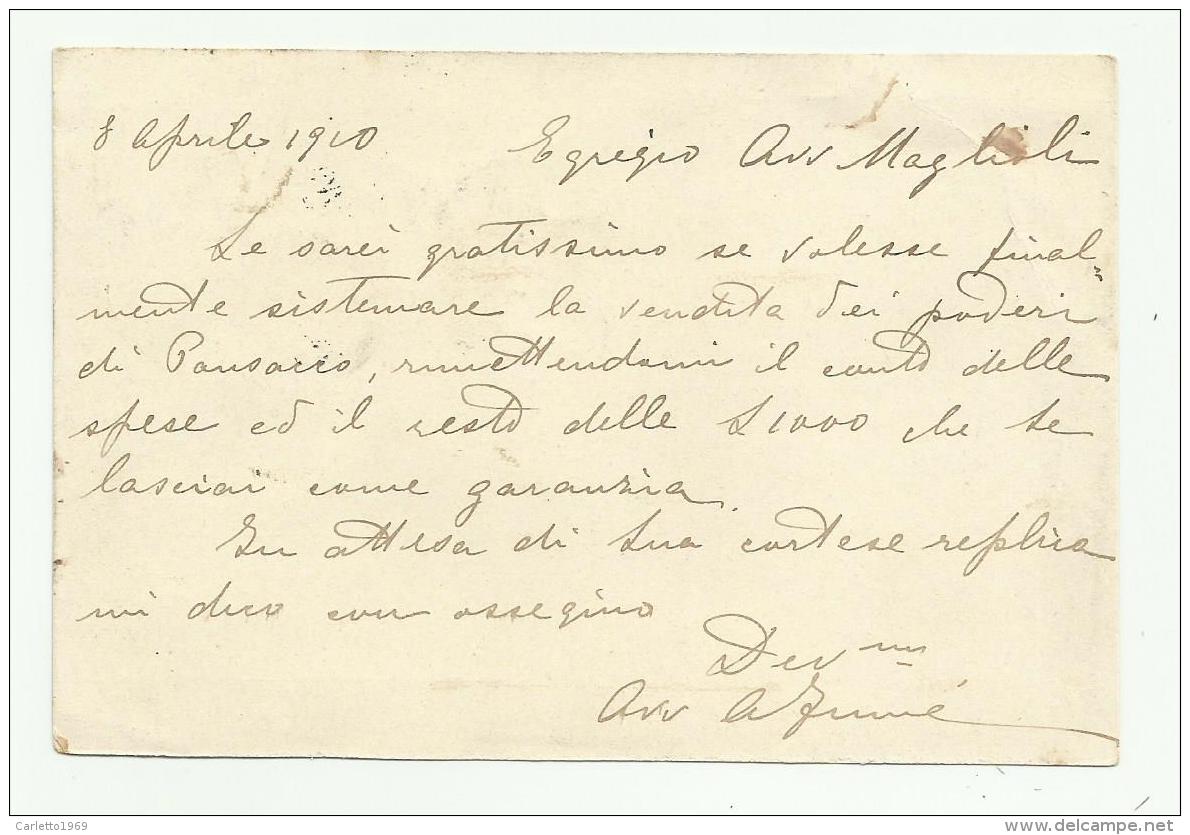 8 Aprile 1910 Egregio Avv Maglioli
Le sarei gratissimo se volesse final-
mente sistemare la vendita dei poderi
di Ponsacco, rimettendomi il conto delle
spese ed il resto delle £ 1000 che Le
lasciai come garanzia.
In attesa di Sua cortese replica
mi dico con ossequio
Dev mo
Avv A
Carletto1969
delcampe.net